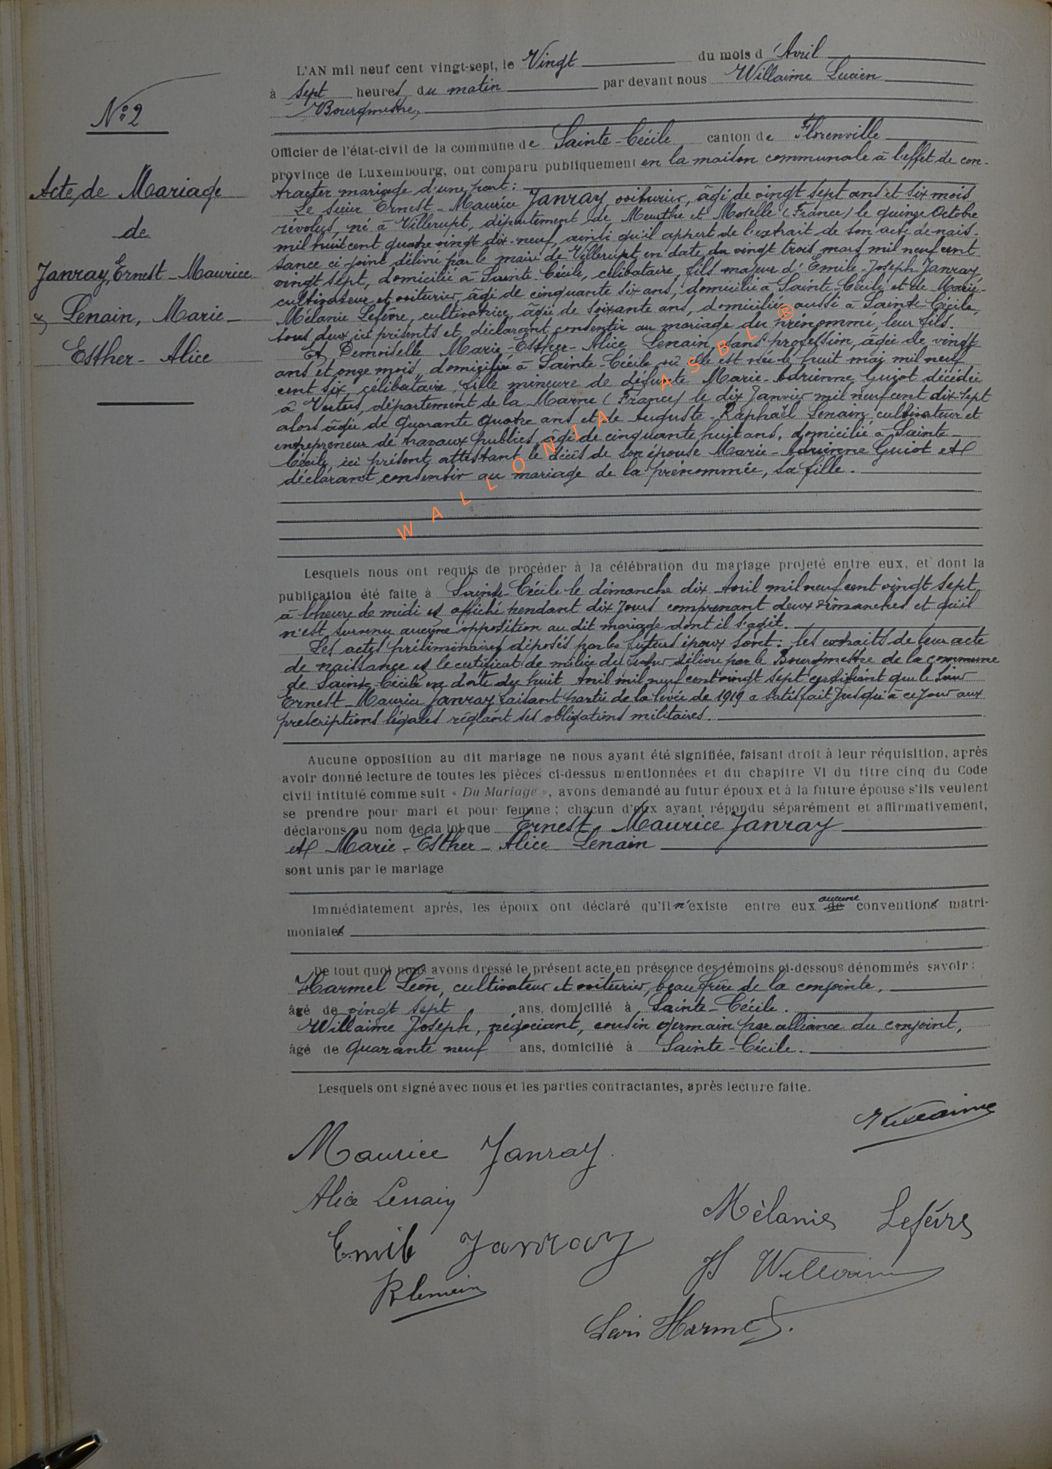 L'AN mil neuf cent vingt-sept, le Vingt du mois d'Avril
à sept heures du matin par devant nous Willaime Lucien
Bourgmestre,
Officier de l'état-civil de la commune de Sainte-Cécile canton de Florenville
province de Luxembourg, ont comparu publiquement en la maison communale à l'effet de con-
tracter mariage d'une part :
Le sieur Ernest-Maurice Janray, voiturier, âgé de vingt sept ans et six mois
révolus, né à Villerupt, département de Meurthe et Moselle (France) le quinze Octobre
mil huit cent quatre vingt dix-neuf, ainsi qu'il appert de l'extrait de son acte de nais-
sance ci-joint délivré par le maire de Villerupt en date du vingt trois mars mil neuf cent
vingt sept, domicilié à Sainte Cécile, célibataire, fils majeur d'Emile-Joseph Janray,
cultivateur et voiturier, âgé de cinquante six ans, domicilié à Sainte Cécile et de Marie-
Mélanie Lefèvre, cultivatrice, âgée de soixante ans, domiciliée aussi à Sainte Cécile,
tous deux ici présents et déclarant consentir au mariage du prénommé, leur fils.
Et Demoiselle Marie-Esther-Alice Lenain, sans profession, âgée de vingt
ans et onze mois, domiciliée à Sainte-Cécile où elle est née le huit mai mil neuf
cent six, célibataire, fille mineure de défunte Marie-Adrienne Guiot décédée
à Vertus, département de la Marne (France) le dix Janvier mil neuf cent dix-sept
alors âgée de quarante quatre ans et de Auguste-Raphaël Lenain, cultivateur et
entrepreneur de travaux publics, âgé de cinquante huit ans, domicilié à Sainte
Cécile, ici présent, attestant le décès de son épouse Marie-Adrienne Guiot et
déclarant consentir au mariage de la prénommée, sa fille.
N° 2
Acte de Mariage
de
Janray, Ernest-Maurice
& Lenain, Marie-
Esther-Alice
WALLONIA ASBL ®
Lesquels nous ont requis de procéder à la célébration du mariage projeté entre eux, et dont la
publication été faite à Sainte-Cécile le dimanche dix Avril mil neuf cent vingt sept
à l'heure de midi et affiché pendant dix jours comprenant deux dimanches et qu'il
n'est survenu aucune opposition au dit mariage dont il s'agit.
Les actes préliminaires déposés par les futurs époux sont : les extraits de leur acte
de naissance et le certificat de milice du futur délivré par le Bourgmestre de la commune
de Sainte Cécile en date du huit Avril mil neuf cent vingt sept certifiant que le sieur
Ernest-Maurice Janray faisant partie de la levée de 1919 a satisfait jusqu'à ce jour aux
prescriptions légales réglant ses obligations militaires.
Aucune opposition au dit mariage ne nous ayant été signifiée, faisant droit à leur réquisition, après
avoir donné lecture de toutes les pièces ci-dessus mentionnées et du chapitre VI du titre cinq du Code
civil intitulé comme suit « Du Mariage », avons demandé au futur époux et à la future épouse s'ils veulent
se prendre pour mari et pour femme ; chacun d'eux ayant répondu séparément et affirmativement,
déclarons au nom de la loi que Ernest-Maurice Janray
et Marie-Esther-Alice Lenain
sont unis par le mariage
Immédiatement après, les époux ont déclaré qu'il n'existe entre eux de aucune conventions matri-
moniales
De tout quoi nous avons dressé le présent acte en présence des témoins ci-dessous dénommés savoir :
Harmel Léon, cultivateur et voiturier, beau frère de la conjointe,
âgé de vingt sept ans, domicilié à Sainte-Cécile.
Willaime Joseph, négociant, cousin germain par alliance du conjoint,
âgé de quarante neuf ans, domicilié à Sainte-Cécile.
Lesquels ont signé avec nous et les parties contractantes, après lecture faite.
Willaime
Maurice Janray.
Alice Lenain
Mélanie Lefèvre
Emile Janray
J Willaime
R Lenain
Léon Harmel.